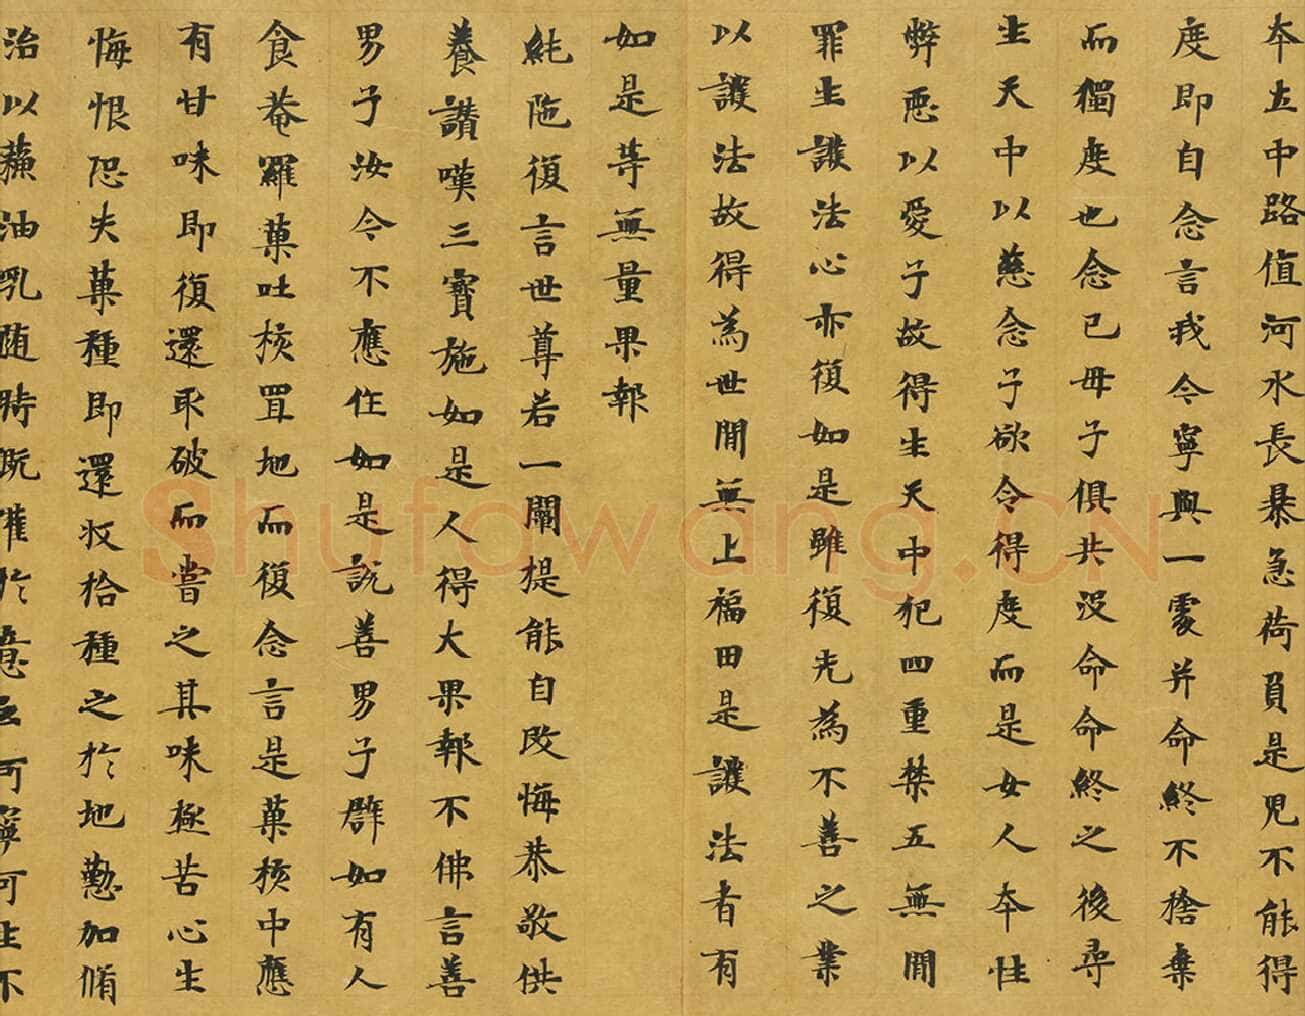 夲土中路值河水長暴急荷負是兒不能得
度即自念言我今寧與一處并命終不捨棄
而獨度也念已母子俱共没命命終之後尋
生天中以慈念子欲令得度而是女人夲性
弊惡以愛子故得生天中犯四重禁五無間
罪生護法心亦復如是雖復先為不善之業
以護法故得為世間無上福田是護法者有
如是等無量果報
純陁復言世尊若一闡提能自改悔恭敬供
養讚嘆三寶施如是人得大果報不佛言善
男子汝今不應作如是說善男子譬如有人
食菴羅菓吐核置地而復念言是菓核中應
有甘味即復還取破而甞之其味極苦心生
悔恨恐失菓種即還收拾種之於地懃加脩
治以蘇油乳随時溉灌於意云何寧可生不
Shufawang.CN